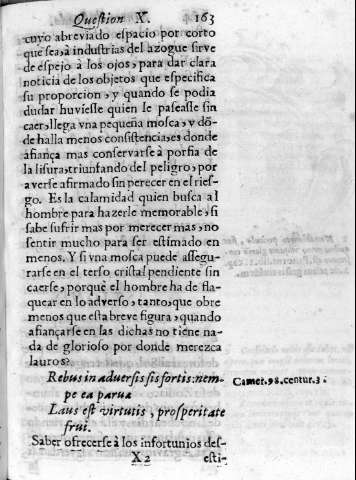 Question X. 163
cuyo abreviado espacio por corto
que sea, à industrias del azogue sirve
de espejo à los ojos, para dar clara
noticia de los objetos que especifica
su proporcion, y quando se podia
dudar huviesse quien le passeasse sin
caer, llega vna pequeña mosca, y dõ-
de halla menos consistencia, es donde
afiança mas conservarse à porfia de
la lisura, triunfando del peligro, por
averse afirmado sin perecer en el ries-
go. Es la calamidad quien busca al
hombre para hazerle memorable, si
sabe sufrir mas por merecer mas, no
sentir mucho para ser estimado en
menos. Y si vna mosca puede assegu-
rarse en el terso cristal pendiente sin
caerse, porquè el hombre ha de fla-
quear en lo adverso, tanto, que obre
menos que esta breve figura, quando
afiançarse en las dichas no tiene na-
da de glorioso por donde merezca
lauros?
Rebus in adversis sis fortis: nem-
pe ea parua
Camer. 98. centur. 3.
Laus est virtutis, prosperitate
frui.
Saber ofrecerse à los infortunios des-
X 2 esti-